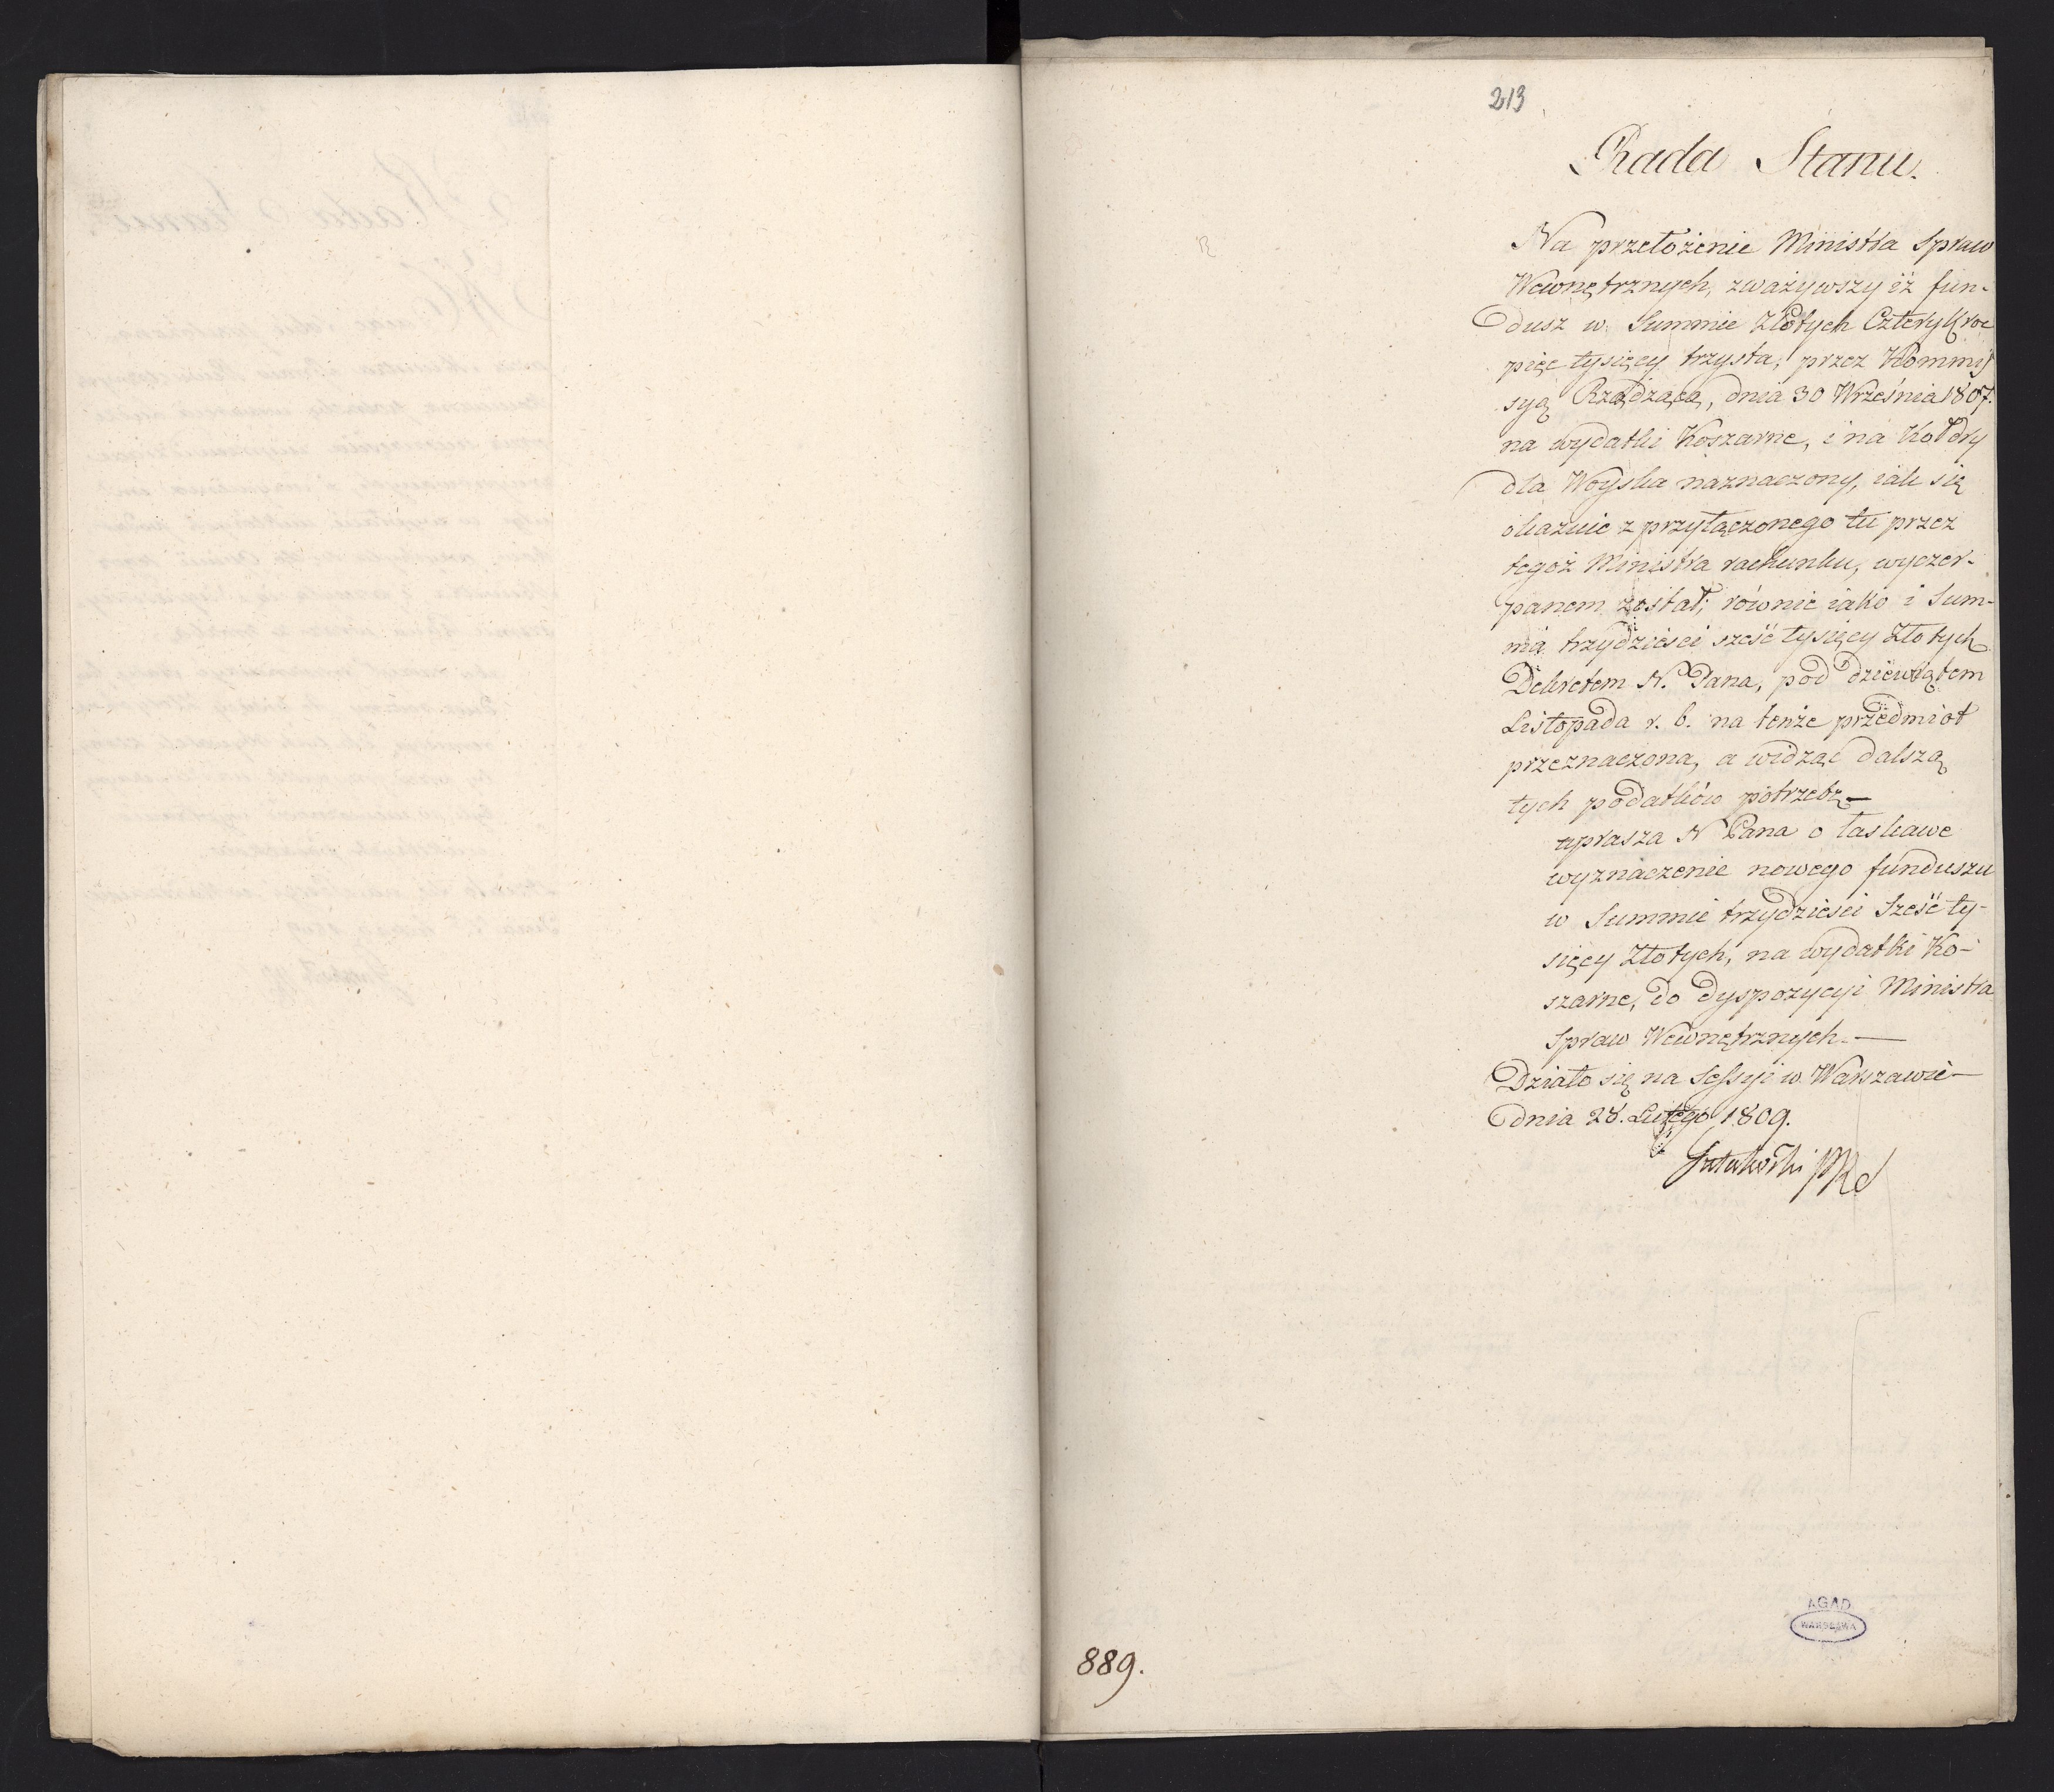 213
Rada Stanu.
Na przełożenie Ministra Spraw
Wewnętrznych, zważywszy iż fun-
dusz w Summie Złotych Czterykroć
pięć tysięcy trzysta, przez Kommis
syą Rządzącą, dnia 30 Września 1807.
na wydatki Koszarne, i na Kołdry
dla Woyska naznaczony, iak się
okazuie z przyłączonego tu przez
tegoż Ministra rachunku, wyczer-
panem został; równie iako i Sum-
ma trzydzieści sześć tysięcy Złotych
Dekretem N. Pana, pod dziewiątem
Listopada r. b. na tenże przedmiot
przeznaczona, a widząc dalszą
tych podatków potrzebę—
uprasza N Pana o łaskawe
wyznaczenie nowego funduszu
w Summie trzydzieści Sześć ty-
sięcy Złotych, na wydatki Ko-
szarne, do dyspozycyi Ministra
Spraw Wewnętrznych.—
Działo się na Sessyi w Warszawie—
dnia 28. Lutego 1809.
889.
AGAD
WARSZAWA